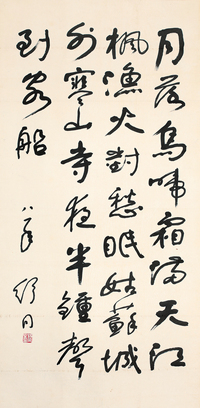 月落烏啼霜滿天江
楓漁火對愁眠姑蘇城
外寒山寺夜半鐘聲
到客船
八年 舒同